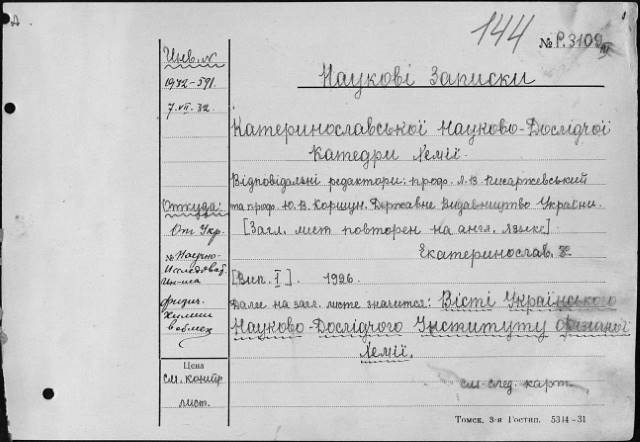 144 № P.3109
Инв. №
1932-591.
7.VII.32.
Наукові Записки
Катеринославської Науково-Дослідчої
Катедри Хемії.
Відповідальні редактори: проф. Л. В. Писаржевський
та проф. Ю. В. Коршун. Державне Видавництво України.
[Загл. лист повторен на англ. языке]
Екатеринослав.
[Вип. I]. 1926.
Далее на загл. листе значится: Вісті Українського
Науково-Дослідчого Інституту Фізичної
Хемії.
см. след. карт.
Откуда:
От Укр.
Научно-
Исследоват.
Ин-та
физич.
Химии
в обмен
Цена
см. контр.
лист.
Томск, 3-я Гостип. 5314-31